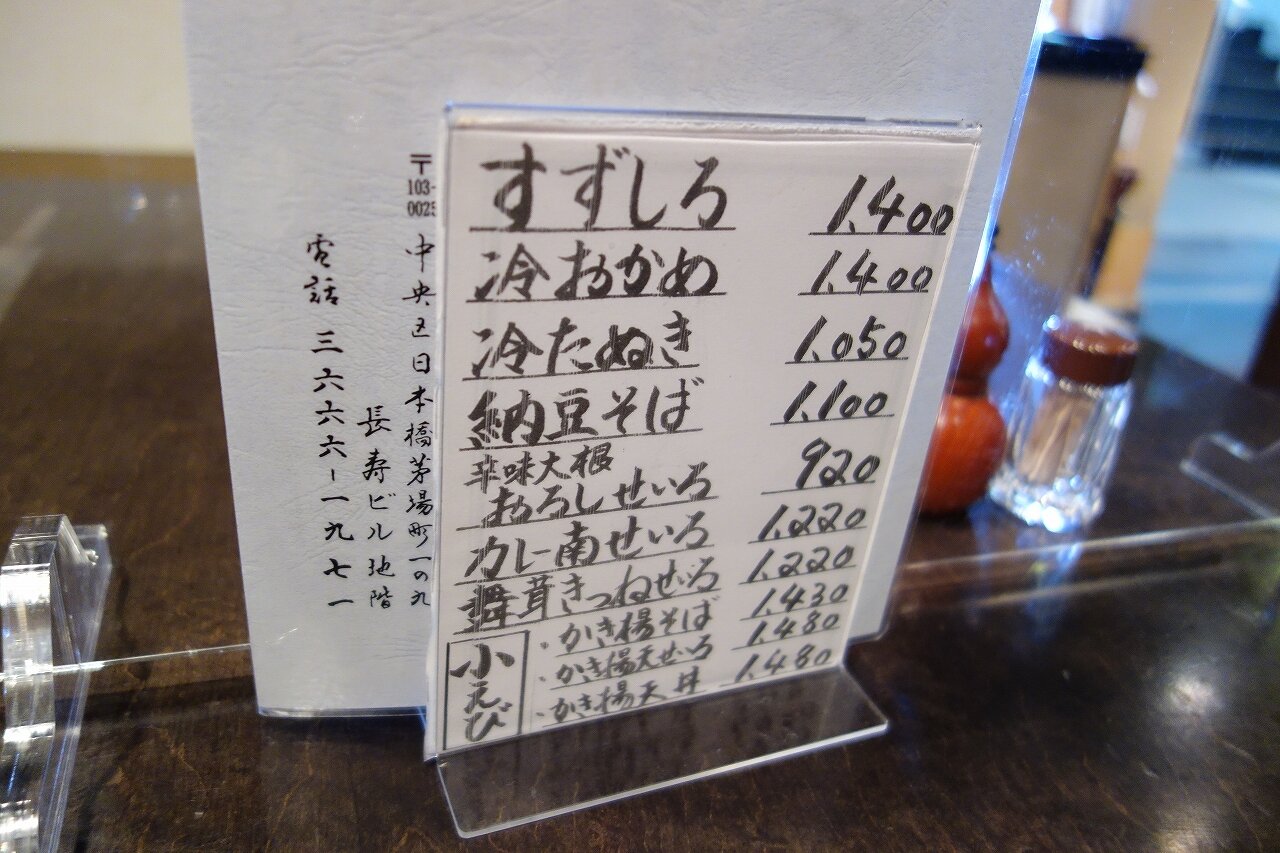 すずしろ 1.400
冷おかめ 1.400
冷たぬき 1.050
納豆そば 1.100
辛味大根
おろしせいろ 920
カレー南せいろ 1.220
舞茸きつねせいろ 1.220
小えび
・かき揚そば 1.430
・かき揚天せいろ 1.480
・かき揚天丼 1.480
〒103-0025
中央区日本橋茅場町一の九
長寿ビル地階
電話 三六六六-一九七一